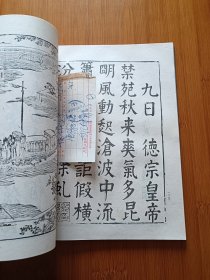 九日 德宗皇帝
禁苑秋来爽气多昆
明風動起滄波中流
簫 詎假横
汾